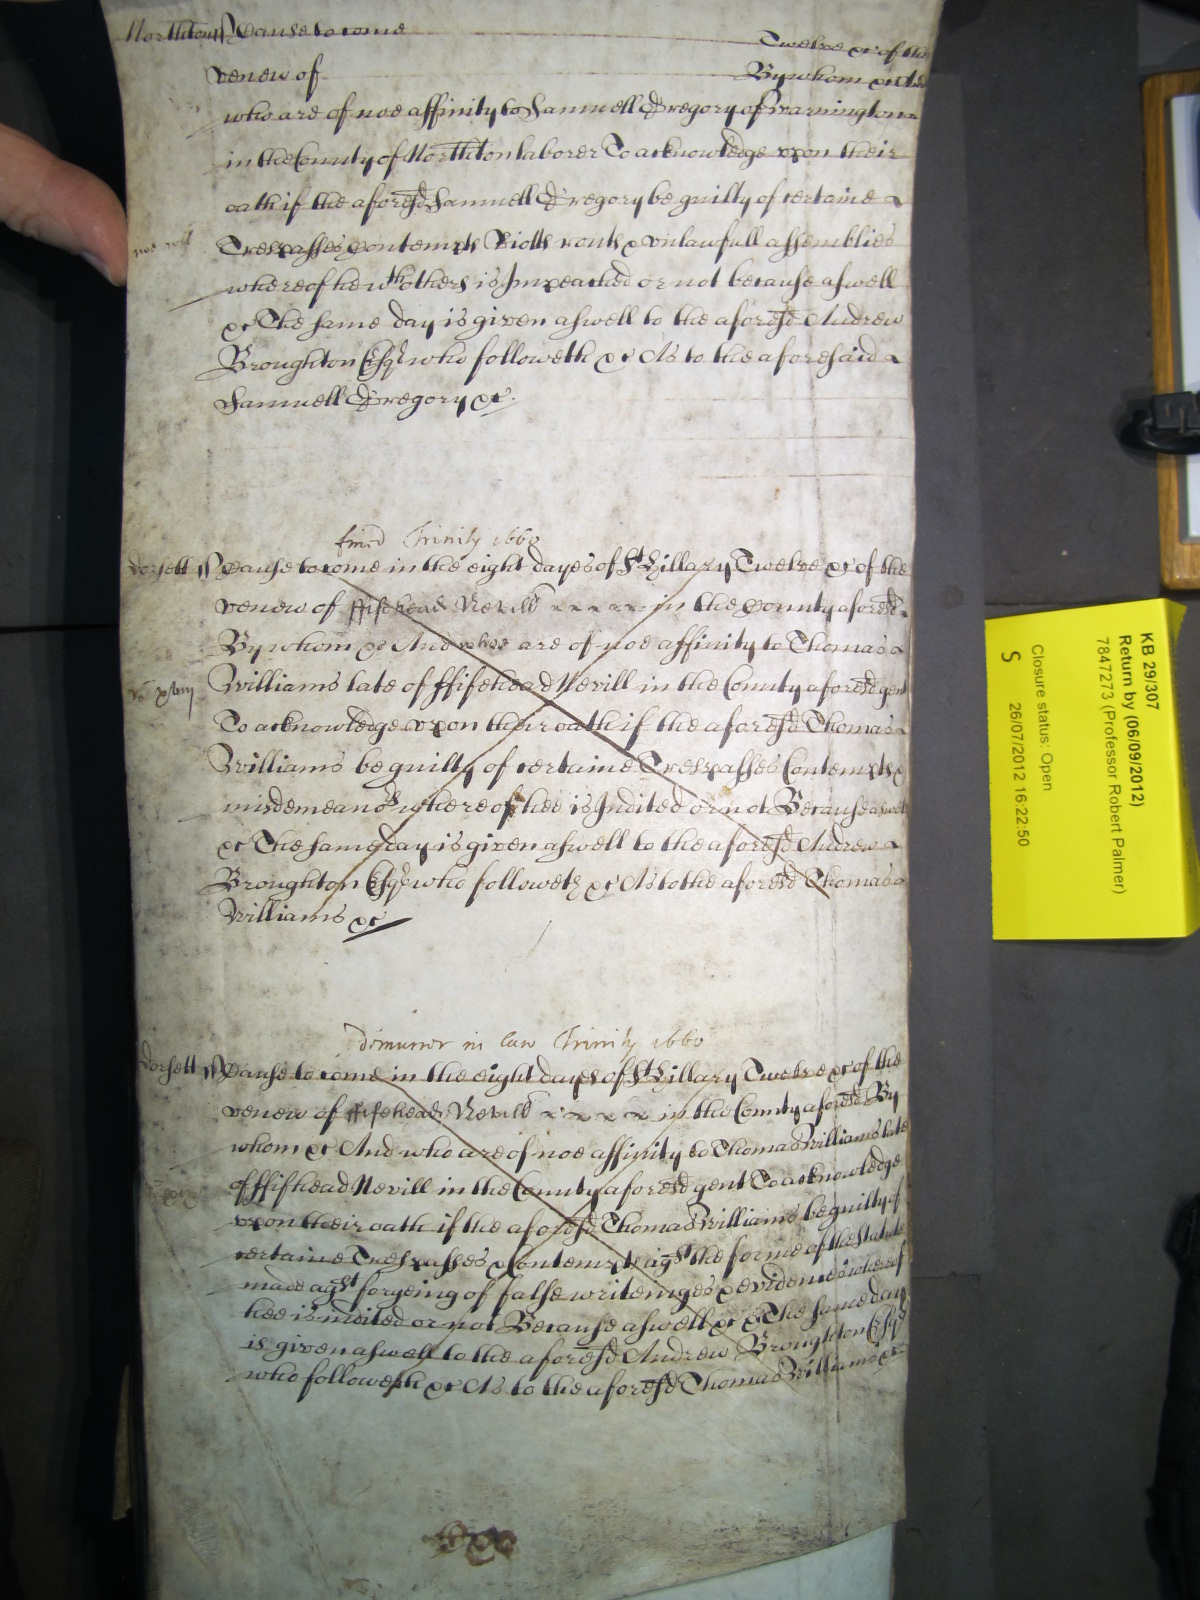 Northton ss Cause to come Twelve &c of the
venew of By whom &c And
who are of noe affinity to Samuell Gregory of Warnington
in the County of Northton laborer To acknowledge vpon their
oath if the aforesd Samuell Gregory be guilty of certaine
Trespasses Contempts Riotts routs & vnlawfull assemblies
whereof he wth others is Impeached or not because aswell
&c The same day is given aswell to the aforesd Andrew
Broughton Esqr who followeth &c As to the aforesaid
Samuell Gregory &c.
fined Trinity 1660
Dorsett ss Cause to come in the eight dayes of St Hillary Twelve &c of the
venew of ffifehead Nevill in the County aforesd
By whom &c And whoe are of noe affinity to Thomas
Williams late of ffifehead Nevill in the County aforesd gent
To acknowledge vpon their oath if the aforesd Thomas
Williams be guilty of certaine Trespasses Contempts &
misdemeanors whereof hee is Indited or not Because aswell
&c The same day is given aswell to the aforesd Andrew
Broughton Esqr who followeth &c As to the aforesd Thomas
Williams &c
Dimurror in law Trinity 1660
Dorsett ss Cause to come in the eight dayes of St Hillary Twelve &c of the
venew of ffifehead Nevill in the County aforesd By
whom &c And who are of noe affinity to Thomas Williams late
of ffifhead Nevill in the County aforesd gent To acknowledge
vpon their oath if the aforesd Thomas Williams be guilty of
certaine Trespasses & Contempts agst the forme of the Statute
made agst forgeing of false writeinges & evidences whereof
hee is indited or not Because aswell &c The same day
is given aswell to the aforesd Andrew Broughton Esqr
who followeth &c As to the aforesd Thomas Williams &c
KB 29/307
Return by (06/09/2012)
7847273 (Professor Robert Palmer)
Closure status: Open
S 26/07/2012 16:22:50